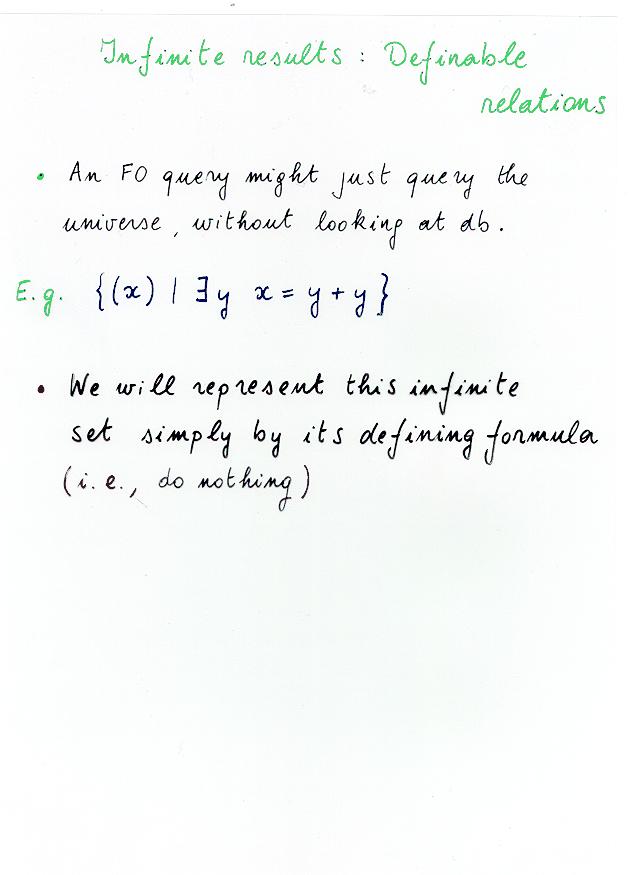 Infinite results : Definable
relations
• An FO query might just query the
universe, without looking at db.
E.g. {(x) | ∃y x = y + y}
• We will represent this infinite
set simply by its defining formula
(i.e., do nothing)